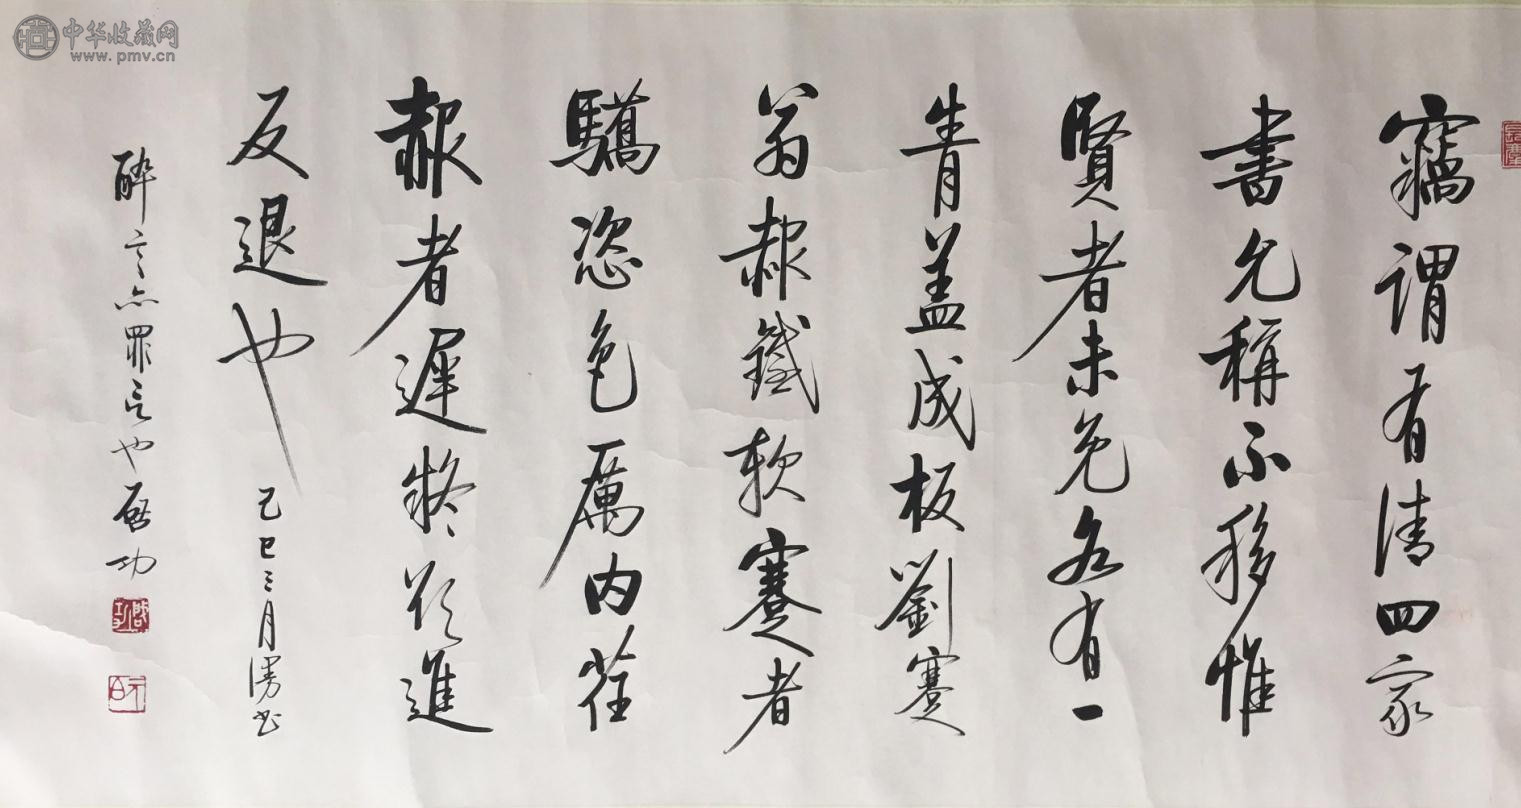 中华收藏网
www.pmv.cn
竊謂有清四家
書允稱不移惟
賢者未免各有一
眚盖成板劉蹇
翁赧鐵軟蹇者
驕恣色厲内荏
赧者遲疑欲進
反退也
己巳三月漫书
醉言亦罪言也启功
启功